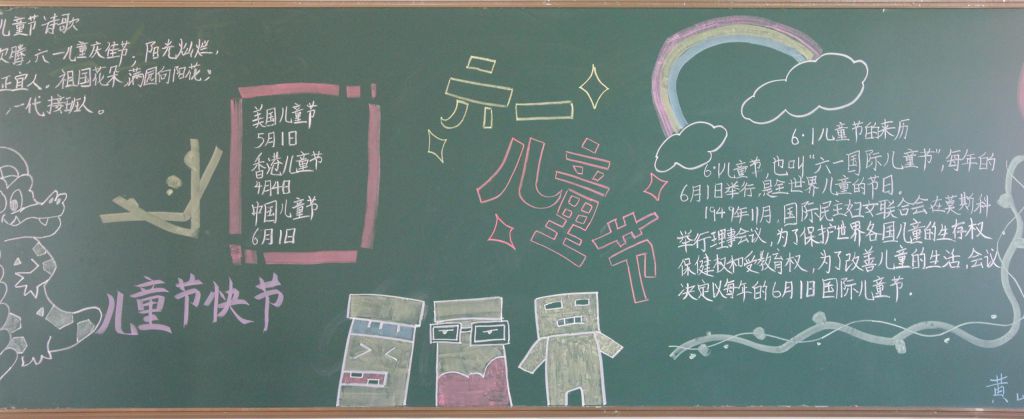 儿童节诗歌
欢腾,六一儿童庆佳节;阳光灿烂,
正宜人。祖国花朵,满园向阳花;
一代接班人。
美国儿童节
5月1日
香港儿童节
4月4日
中国儿童节
6月1日
儿童节快节
六一
儿童节
6·1儿童节的来历
6·1儿童节,也叫“六一国际儿童节”,每年的
6月1日举行,是全世界儿童的节日。
1949年11月,国际民主妇女联合会在莫斯科
举行理事会议,为了保护世界各国儿童的生存权
保健权和受教育权,为了改善儿童的生活,会议
决定以每年的6月1日国际儿童节.
黄